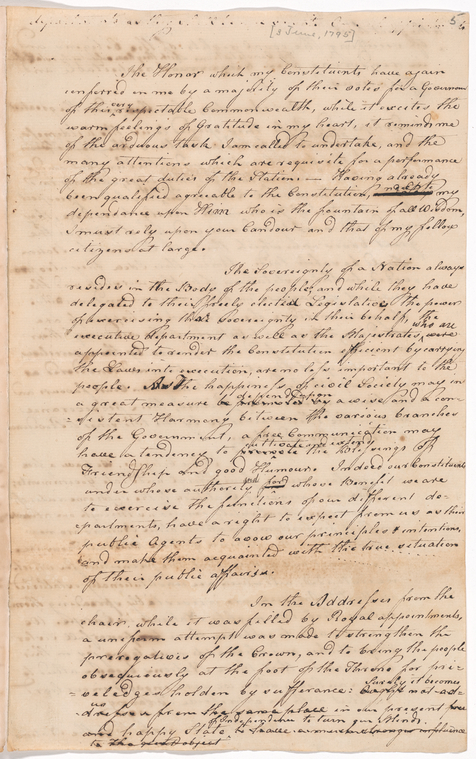 5
[3 June, 1795]
The Honor which my Constituents have again
conferred on me by a majority of their votes for a Governour
of this our respectable Commonwealth, while it excites the
warm feelings of Gratitude in my heart, it reminds me
of the arduous task I am called to undertake, and the
many attentions which are requisite for a performance
of the great duties of the Station. — Having already
been qualified agreeable to the Constitution, next to my
dependance upon Him who is the fountain of all Wisdom,
I must rely upon your Candour and that of my fellow
citizens at large.
The Sovereignty of a Nation always
resides in the Body of the people, and while they have
delegated to their freely elected Legislatures the power
of exercising that Sovereignty in their behalf, the
executive department as well as the Magistrates, who are
appointed to render the Constitution efficient by carrying
the Laws into execution, are no less important to the
people. As the happiness of civil Society may in
a great measure depend upon a wise and a con-
-sistent Harmony between the various branches
of the Government, a free Communication may
have a tendency to the Blessings of
Friendship and good Humour. Indeed our Constituents
under whose authority and for whose Benefit we are
to exercise the functions of our different de-
-partments, have a right to expect from us as their
public Agents to avow our principles & intentions,
and make them acquainted with the true situation
of their public affairs.
In the Addresses from the
chair, while it was filled by Royal appointments,
a uniform attempt was made to strengthen the
prerogatives of the Crown, and to bring the people
obsequiously at the foot of the Throne for pri-
-veledges holden by sufferance: Surely it becomes us not ad-
-dress from the same place in our present free
and happy State of Independence to turn our Minds
to the great object